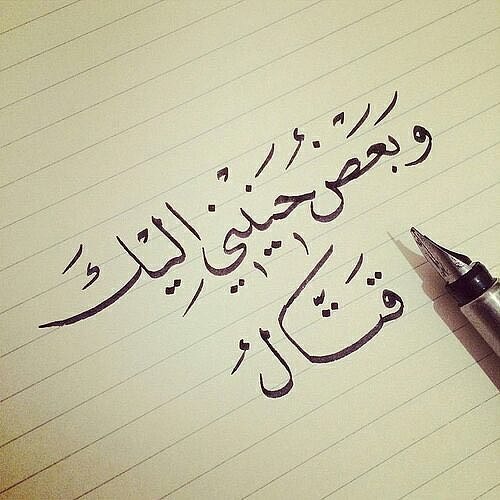 وَبَعْضُ حَنِيْنِي إليْكَ
قَتَّالُ